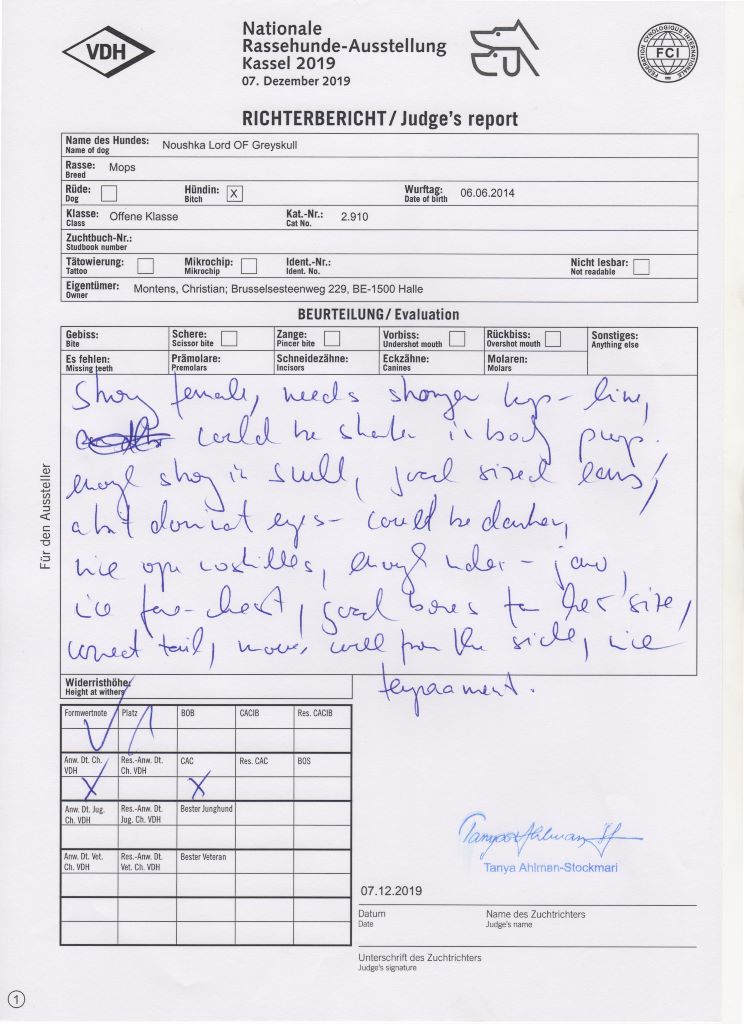 VDH
Nationale
Rassehunde-Ausstellung
Kassel 2019
07. Dezember 2019
FEDERATION CYNOLOGIQUE INTERNATIONALE
FCI
RICHTERBERICHT/Judge's report
Name des Hundes: Noushka Lord OF Greyskull
Name of dog
Rasse: Mops
Breed
Rüde: Hündin: X Wurftag: 06.06.2014
Dog Bitch Date of birth
Klasse: Offene Klasse Kat.-Nr.: 2.910
Class Cat No.
Zuchtbuch-Nr.:
Studbook number
Tätowierung: Mikrochip: Ident.-Nr.: Nicht lesbar:
Tattoo Mikrochip Ident. No. Not readable
Eigentümer: Montens, Christian; Brusselsesteenweg 229, BE-1500 Halle
Owner
BEURTEILUNG/Evaluation
Gebiss: Schere: Zange: Vorbiss: Rückbiss: Sonstiges:
Bite Scissor bite Pincer bite Undershot mouth Overshot mouth Anything else
Es fehlen: Prämolare: Schneidezähne: Eckzähne: Molaren:
Missing teeth Premolars Incisors Canines Molars
Für den Aussteller
Strong female, needs stronger top-line,
could be shorter in body
strong in skull, good sized ears,
eyes - could be darker,
nice open nostrilles, enough under-jaw,
nice fore-chest, good bones for her size,
correct tail, moves well from the side, nice
temparament.
Widerristhöhe:
Height at withers
Formwertnote Platz BOB CACIB Res. CACIB
V 1
Anw. Dt. Ch. VDH Res.-Anw. Dt. Ch. VDH CAC Res. CAC BOS
X X
Anw. Dt. Jug. Ch. VDH Res.-Anw. Dt. Jug. Ch. VDH Bester Junghund
Anw. Dt. Vet. Ch. VDH Res.-Anw. Dt. Vet. Ch. VDH Bester Veteran
Tanya Ahlman-Stockmari
07.12.2019
Datum Name des Zuchtrichters
Date Judge's name
Unterschrift des Zuchtrichters
Judge's signature
1